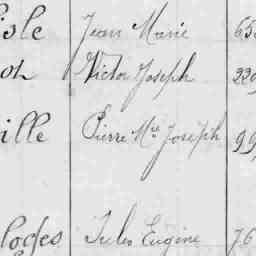 isle Jean Marie 65
on Victor Joseph 229
ille Pierre Mie Joseph 99
lodes Jules Eugène 76